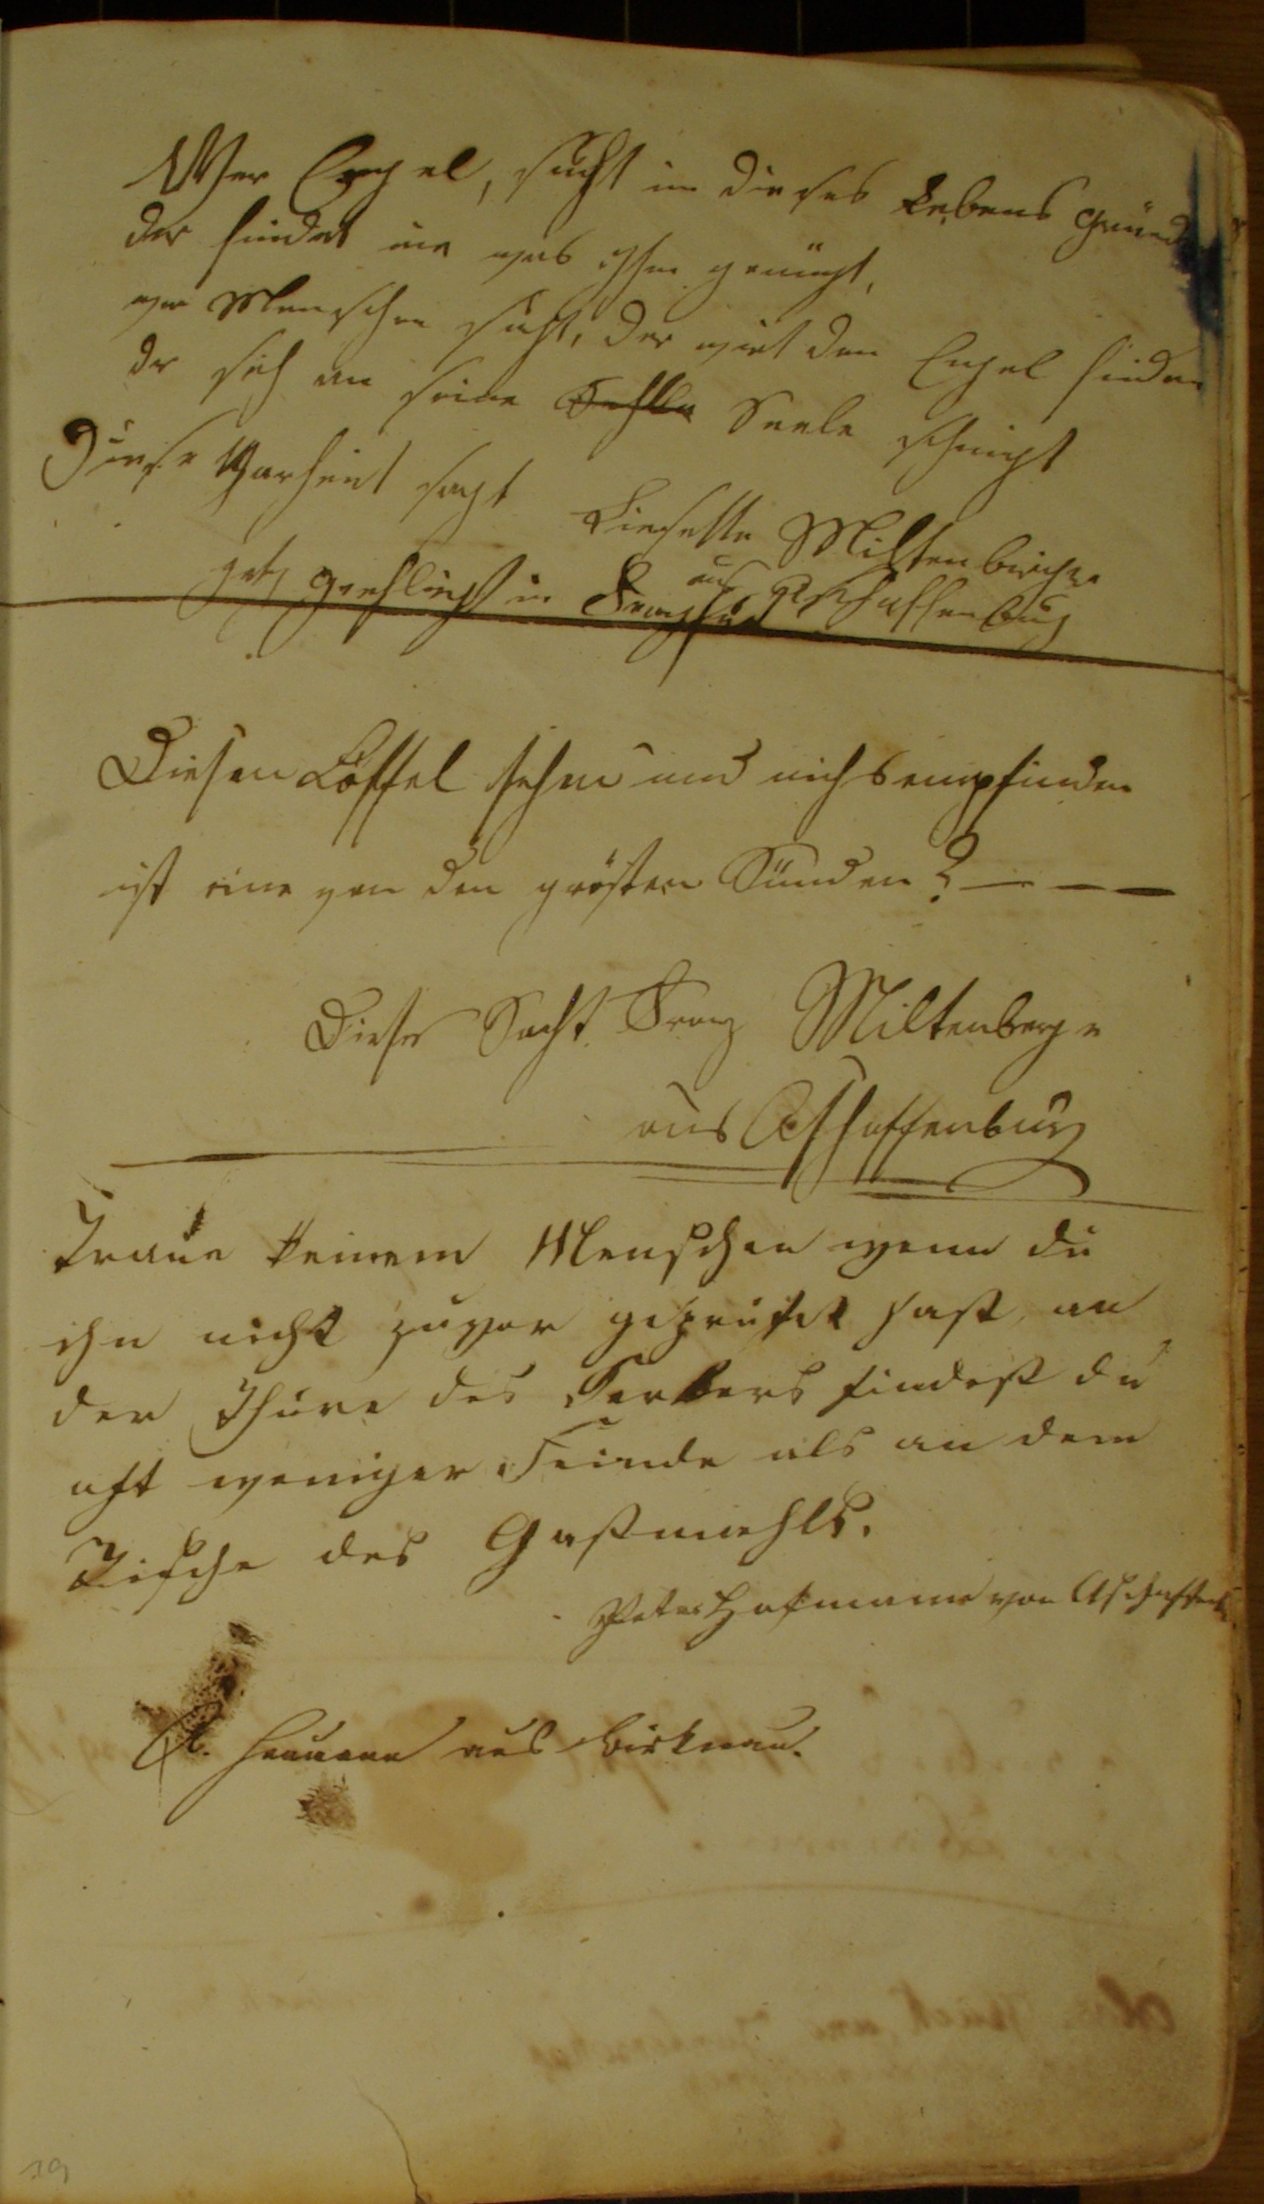 Wer Engel, sucht in dieses Lebens Gründ
der findet nie was ihm genügt,
wer Menschen sucht, der wirt den Engel finden
der sich an seine Seele schmigt
Diese Warheit sagt
Lisette Miltenberger
aus Aschaffenburg
geb
Diesen Löffel sehen und nichs empfinden
ist eine von den grösten Sünden? — — —
Dieses Sacht Franz Miltenberger
aus Aschaffenburg
Traue keinem Menschen wenn du
ihn nicht zuvor geprüfet hast, an
der Thüre des Kerkers findest du
oft weniger Feinde als an dem
Tische des Gastmahls.
Peter Hofmann von Aschaffenb
aus Birkenau.
19